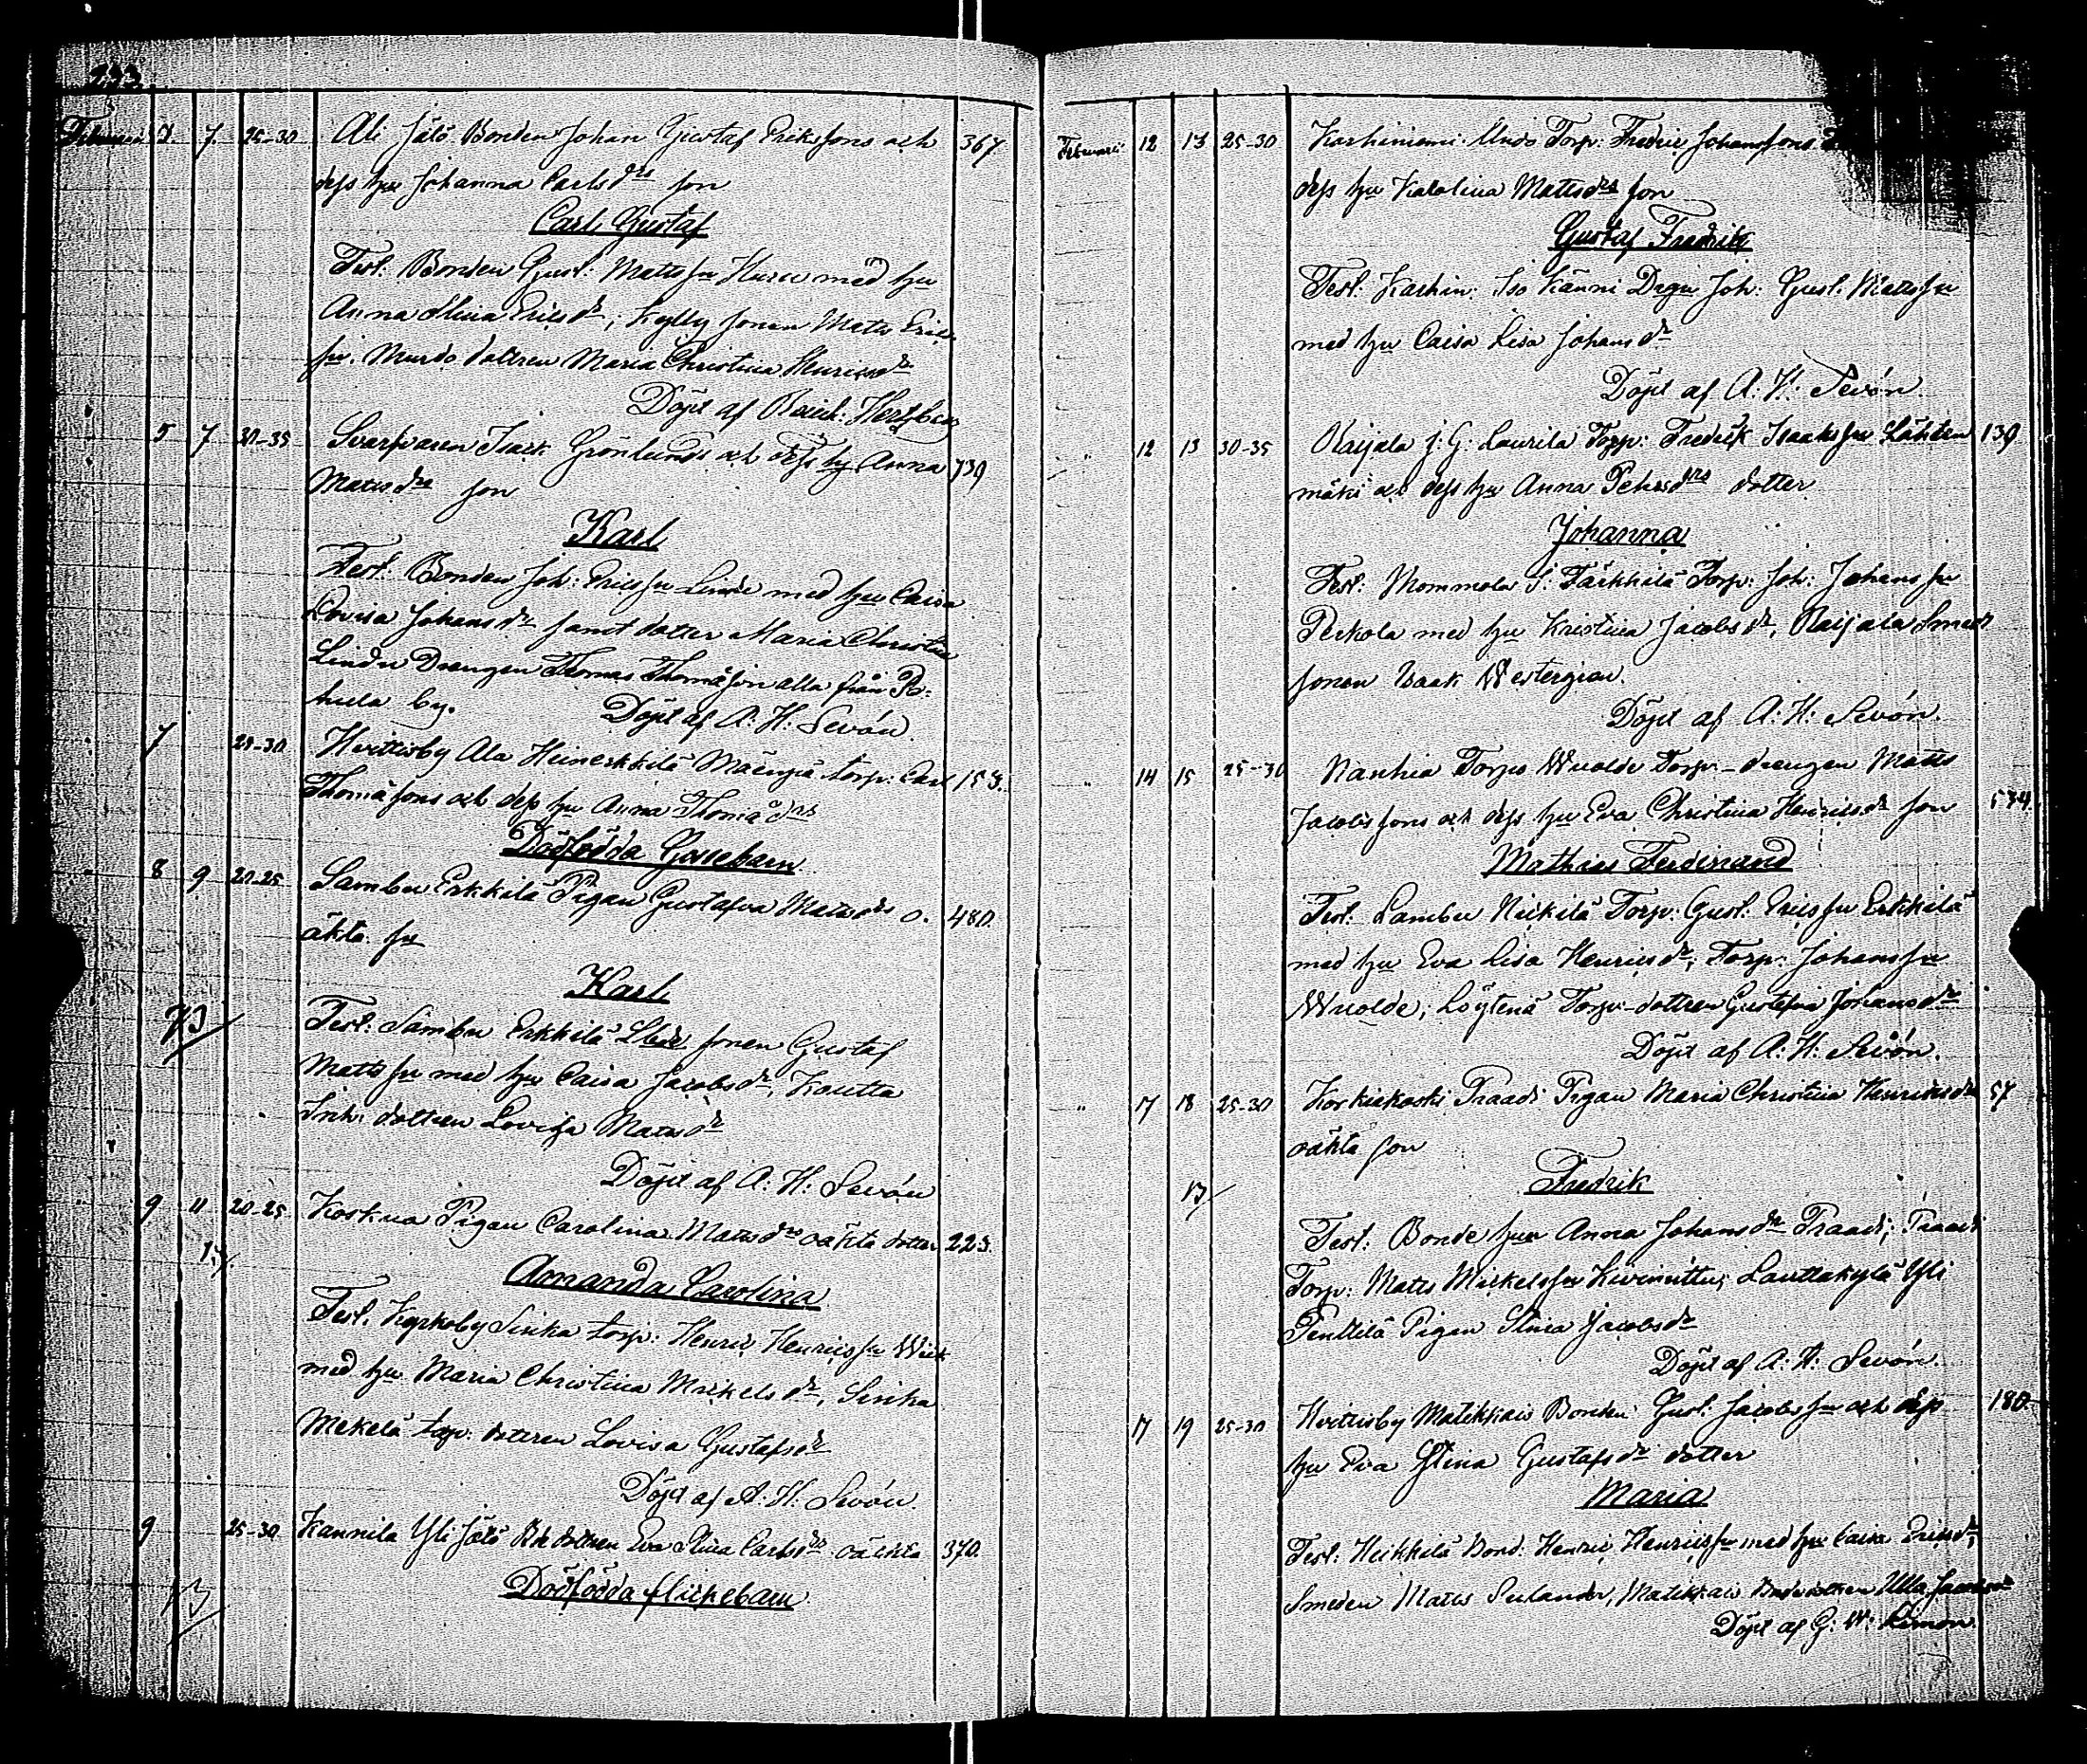 Februari 7. 25-30 Ali Jälö Bonden Johan Gustaf Eriksfons och 367
dess hu Johanna Carls drs son
Carl Gustaf
Test: Bonden Gust: Matts sn Huru med hu
Anna Stina Erics dr; Kylly sonen Matts Erics
sn. Murdo dottren Maria Christina Henricsdr
Döpt af Barch: Hertzberg
5 7 30-35 Svarfvaren Isack Grönlunds och dess hu Anna 739
Matts drs son
Karl
Test: Bonden Joh: Erics sn Lindu med hu Caisa
Lovisa Johans dr samt dotter Maria Christina
Lindu Drengen Thomas Thomasson alla från Po-
hula by. Döpt af A: H: Sevón.
7 25-30 Hvittisby Ala Heinerkkilä Mäenpä torp: Carl 153.
Thomæ sons och dess hu Anna Thomæ drs
Dödfödda Gossebarn.
8 9 20-25 Sambu Erkkilä Pigan Gustafva Matts drs o. 480.
äkta sn
Karl
73
Test: Sambu Erkkilä sonen Gustaf
Matts sn med hu Caisa Jacobs dr, Koutta
Inh: dottren Lovisa Matts dr
Döpt af A: H: Sevón
9 11 20-25 Koskua Pigan Carolina Matts drs oäkta dotter 223.
Amanda Carolina
Test. Karhoby Sinka torp: Henric Henrics sn Wiik
med hu Maria Christina Mickels dr, Sinka
Mekelä torp: dottren Lovisa Gustafs dr
Döpt af A: H: Sevón.
9 25-30 Kannila Yli Jälö dottren Eva Stina Carls drs oäckta 370.
Dödfödda flickebarn
Februarii 12 13 25-30 Karhiniemi Undo Torp: Fredric Johanssons
dess hu Karolina Matts drs son
Gustaf Fredrik
Test. Karhin: Iso Känni Drgn Joh: Gust: Matts sn
med hu Caisa Lisa Johans dr
Döpt af A: H: Sevón.
12 13 30-35 Raijala j: G: Laurila Torp: Fredrik Isaaks sn Lähten 139
mäki och dess hu Anna Pehrs drs dotter
Johanna
Test: Mommola S: Tärkkilä Torp: Joh: Johans sn
Perkola med hu Kristina Jacobs dr, Raijala Smeds
sonen Isaak Westergren.
Döpt af A: H: Sevón.
14 15 25-30 Nanhia Torps Wuolde Torp-drengen Matts
Jacobs sons och dess hu Eva Christina Henrics dr son 534.
Mathias Ferdinand
Test: Lambu Nickilä Torp: Gust: Erics sn Erkkilä
med hu Eva Lisa Henrics dr; Torp: Johans sn
Wuolde; Löytenä Torp-dottren Gustafva Johans dr
Döpt af A: H: Sevón.
17 18 25-30 Korkiakoski Praadi Pigan Maria Christina Henriks drs 57
oäkta son
Fredrik
Test: Bonde hun Anna Johans dr Praadi; Praadi
Torp: Matts Mickels sn Kiviniittu; Lauttakylä Yli
Penttilä Pigan Stina Jacobs dr
Döpt af A: H: Sevón.
17 19 25-30 Hvittisby Matikkais Bonden Gust: Jacobs sn och dess 180
hu Eva Stina Gustafs dr dotter
Maria
Test: Heikkilä Bond: Henric Henrics sn med hu Caisa Erics dr;
Smeden Matts Selander, Matikkais Bondedottren Ulla Jacobsdr
Döpt af G: W: Limon.